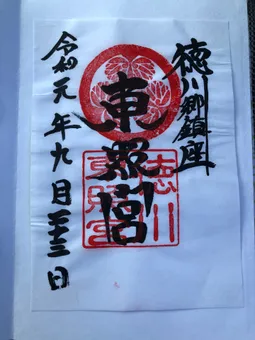 徳川郷鎮座
東照宮
令和元年九月二十三日
徳川
東照宮